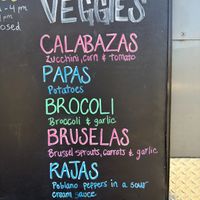 VEGGIES
- 4 pm
pm
osed
CALABAZAS
Zucchini, corn & tomato
PAPAS
Potatoes
BROCOLI
Broccoli & garlic
BRUSELAS
Brussel sprouts, carrots & garlic
RAJAS
Poblano peppers in a sour
cream sauce